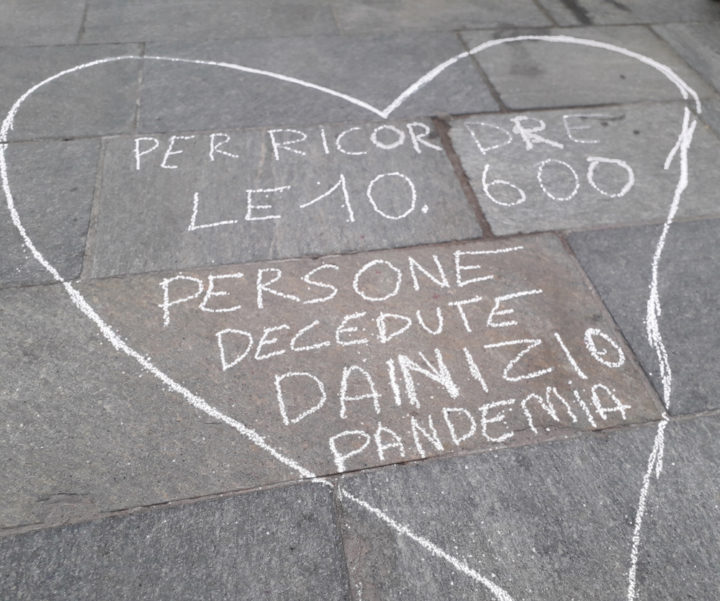 PER RICORDRE
LE 10.600
PERSONE
DECEDUTE
DA INIZIO
PANDEMIA